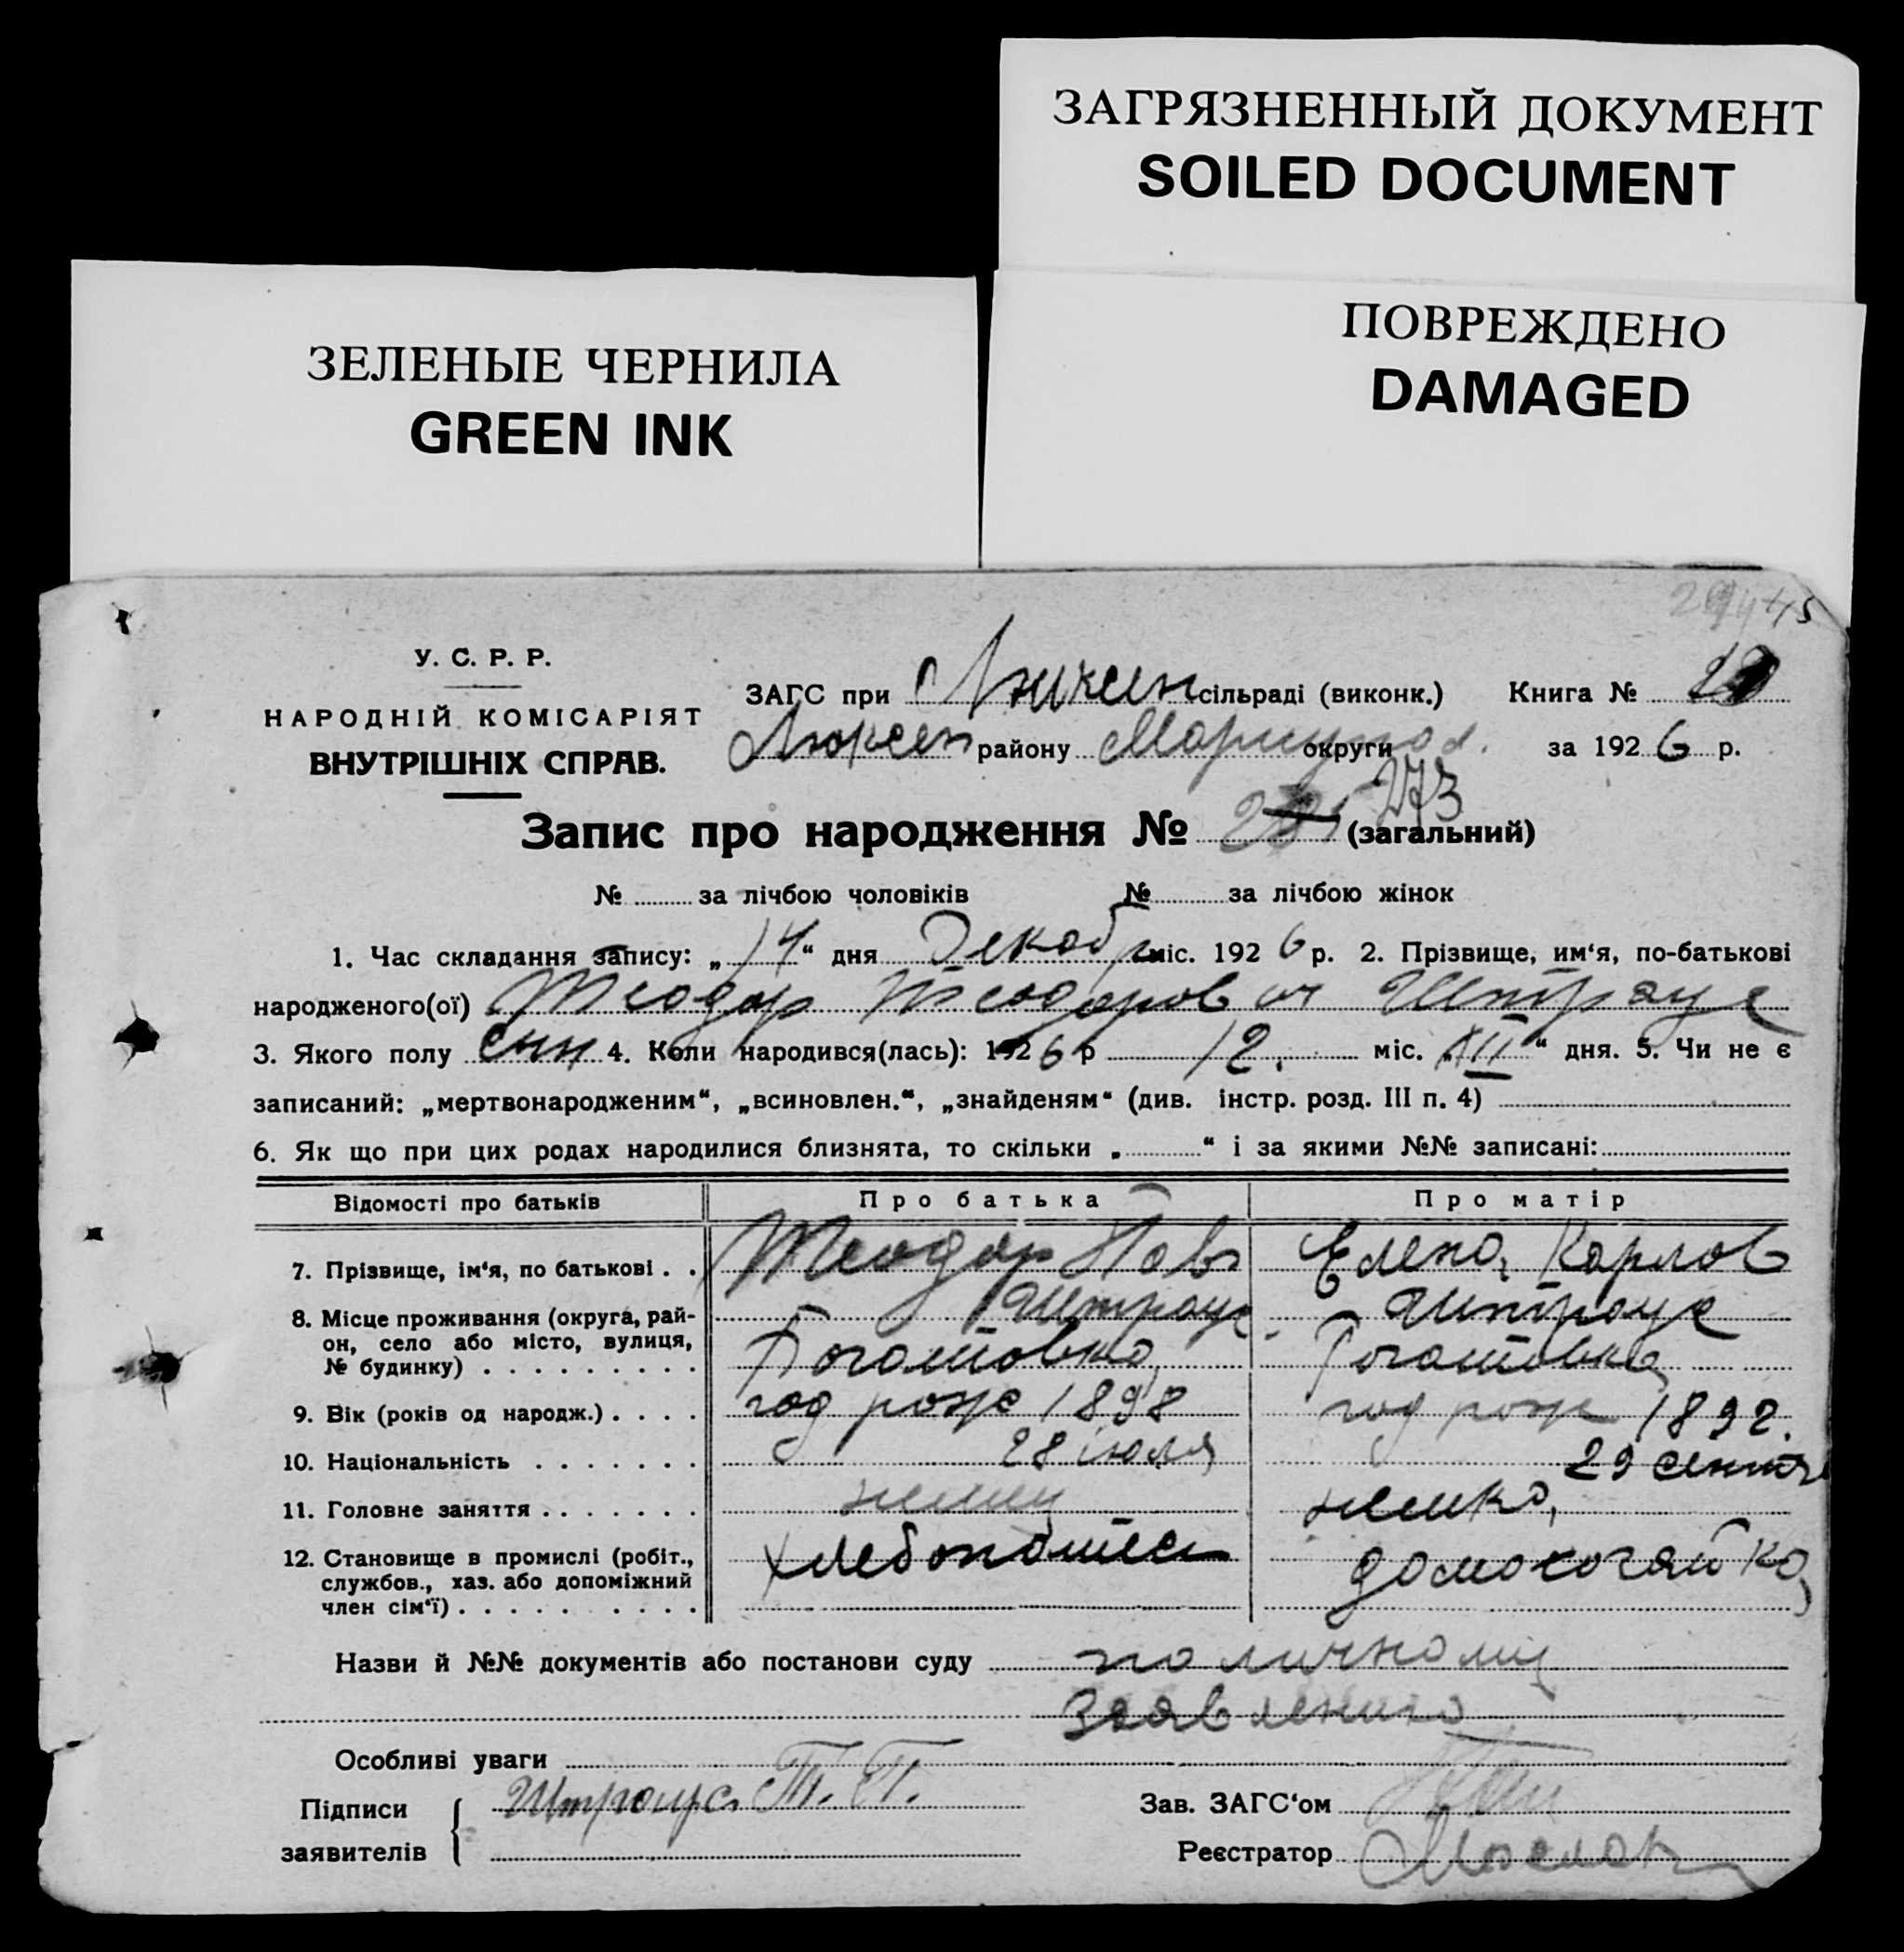 ЗАГРЯЗНЕННЫЙ ДОКУМЕНТ
SOILED DOCUMENT
ЗЕЛЕНЫЕ ЧЕРНИЛА
GREEN INK
ПОВРЕЖДЕНО
DAMAGED
У. С. Р. Р.
НАРОДНІЙ КОМІСАРІЯТ
ВНУТРІШНІХ СПРАВ.
ЗАГС при сільраді (виконк.) Книга №
Люксем району Мариупол. округи за 1926 р.
273
Запис про народження № (загальний)
№ за лічбою чоловіків № за лічбою жінок
1. Час складання запису: „14“ дня Декабр міс. 1926 р. 2. Прізвище, им‘я, по-батькові
народженого(ої) Теодор Теодоров ич Штраус
3. Якого полу сын 4. Коли народився(лась): 1926 р 12. міс. „XII“ дня. 5. Чи не є
записаний: „мертвонародженим“, „всиновлен.“, „знайденям“ (див. інстр. розд. III п. 4)
6. Як що при цих родах народилися близнята, то скільки „ “ і за якими №№ записані:
Відомості про батьків Про батька Про матір
7. Прізвище, ім‘я, по батькові . . Теодор Пав Елена Карлов
Штраус Штраус
8. Місце проживання (округа, рай-
он, село або місто, вулиця,
№ будинку) . . . . . . . . .
9. Вік (років од народж.) . . . . год рож 1898 год рож 1892.
28 июля 29 сентя
10. Національність . . . . . . .
немец немка
11. Головне заняття . . . . . . .
хлебопашец домохозяйка
12. Становище в промислі (робіт.,
службов., хаз. або допоміжний
член сім‘ї) . . . . . . . . . .
Назви й №№ документів або постанови суду по личному
заявлению
Особливі уваги
Підписи Штраус Т. П. Зав. ЗАГС‘ом
заявителів Реєстратор